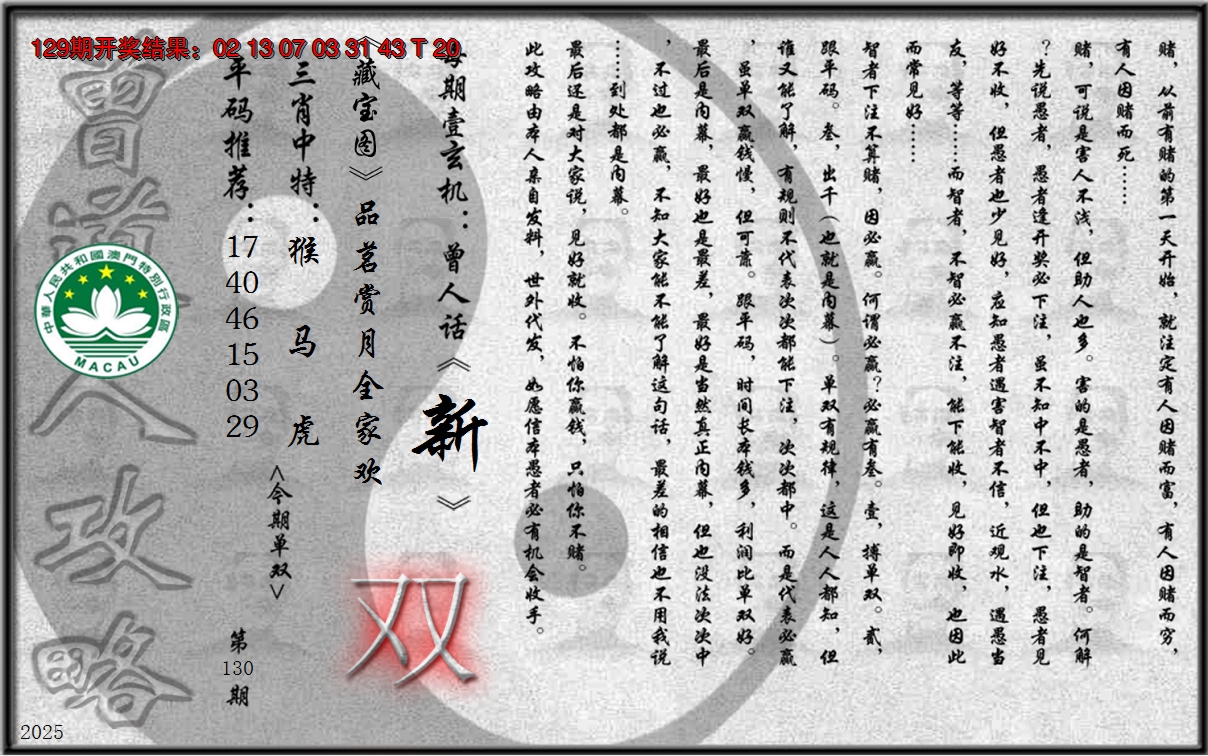 129期开奖结果：02 13 07 03 31 43 T 20
赌，从前有赌的第一天开始，就注定有人因赌而富，有人因赌而穷，
有人因赌而死……
赌，可说是害人不浅，但助人也多。害的是愚者，助的是智者。何解
？先说愚者，愚者逢开奖必下注，虽不知中不中，但也下注，愚者见
好不收，但愚者也少见好，应知愚者遇害智者不信，近观水，遇愚当
友，等等……而智者，不智必赢不注，能下能收，见好即收，也因此
而常见好……
智者下注不算赌，因必赢。何谓必赢？必赢有叁。壹，搏单双。贰，
跟平码。叁，出千（也就是内幕）。单双有规律，这是人人都知，但
谁又能了解，有规则不代表次次都能下注，次次都中。而是代表必赢
，虽单双赢钱慢，但可靠。跟平码，时间长本钱多，利润比单双好。
最后是内幕，最好也是最差，最好是当然真正内幕，但也没法次次中
，不过也必赢，不知大家能不能了解这句话，最差的相信也不用我说
……到处都是内幕。
最后还是对大家说，见好就收。不怕你赢钱，只怕你不赌。
此攻略由本人亲自发料，世外代发，如愿信本愚者必有机会收手。
每期壹玄机：曾人话《新》
《藏宝图》品茗赏月全家欢
双
三肖中特：猴 马 虎
<今期单双>
平码推荐：17 40 46 15 03 29
第130期
曾道人攻略
中華人民共和國澳門特別行政區
MACAU
2025